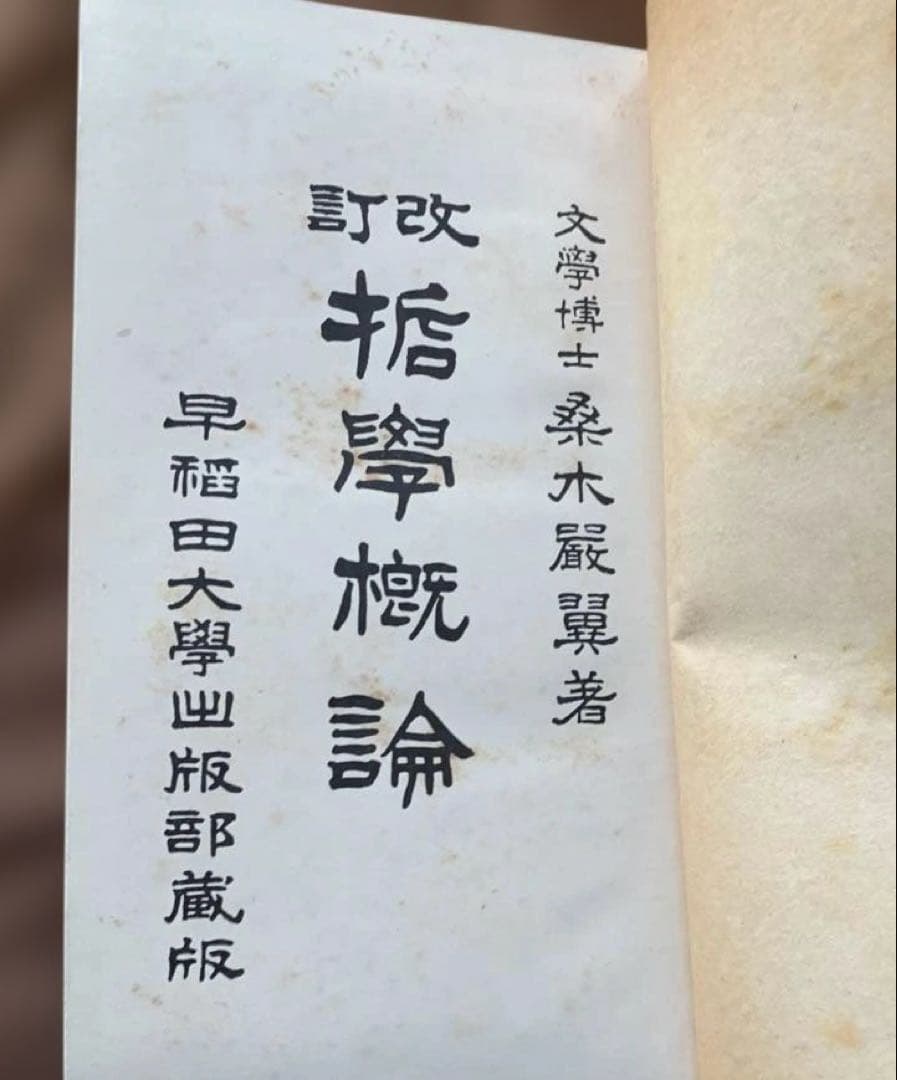 文學博士 桑木嚴翼著
改訂
哲學概論
早稻田大學出版部藏版